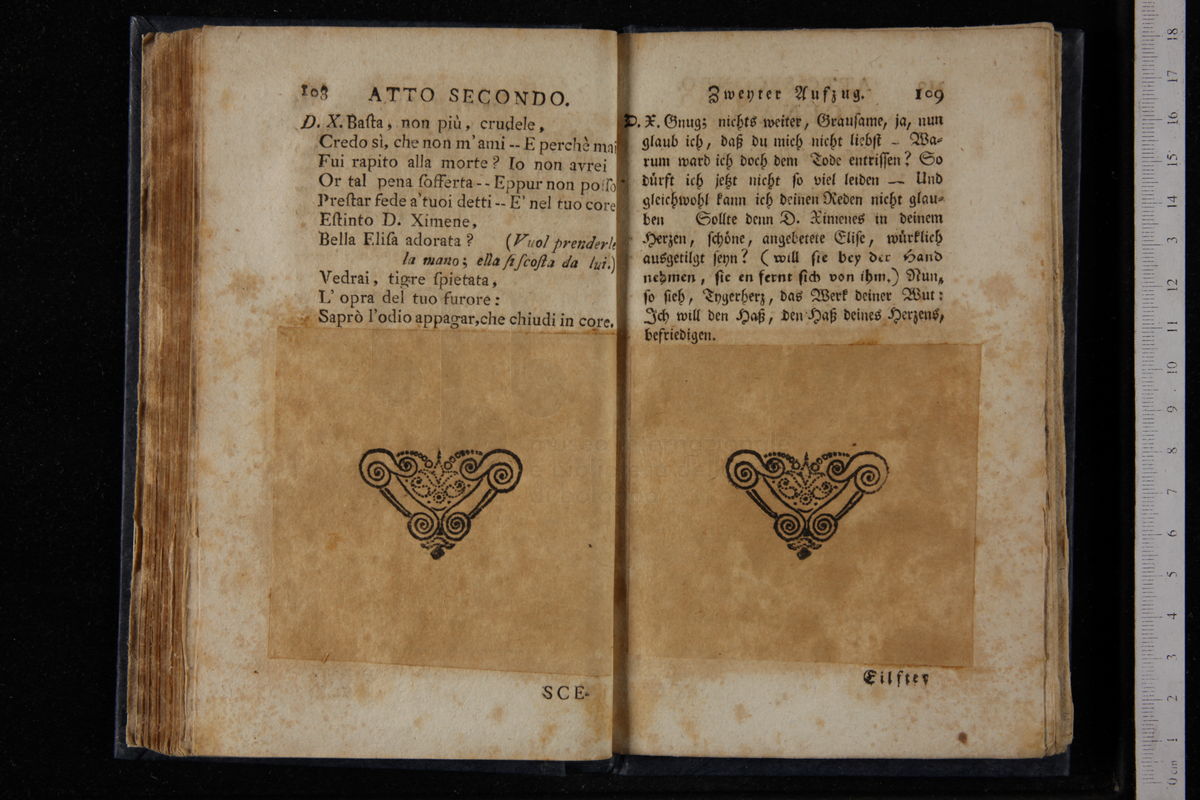 108 ATTO SECONDO.
D. X. Baſta, non più, crudele,
Credo sì, che non m'ami -- E perchè mai
Fui rapito alla morte? Io non avrei
Or tal pena ſofferta -- Eppur non poſſo
Preſtar fede a'tuoi detti -- E' nel tuo core
Eſtinto D. Ximene,
Bella Eliſa adorata? (Vuol prenderle
la mano; ella ſi ſcoſta da lui.)
Vedrai, tigre ſpietata,
L' opra del tuo furore:
Saprò l'odio appagar, che chiudi in core.
SCE-
Zweyter Aufzug. 109
D. X. Gnug; nichts weiter, Grauſame, ja, nun
glaub ich, daß du mich nicht liebſt – Wa-
rum ward ich doch dem Tode entriſſen? So
dürft ich jetzt nicht ſo viel leiden — Und
gleichwohl kann ich deinen Reden nicht glau-
ben Sollte denn D. Ximenes in deinem
Herzen, ſchöne, angebetete Eliſe, würklich
ausgetilgt ſeyn? (will ſie bey der Hand
nehmen, ſie en fernt ſich von ihm.) Nun,
ſo ſieh, Tygerherz, das Werk deiner Wut:
Ich will den Haß, den Haß deines Herzens,
befriedigen.
Eilfter